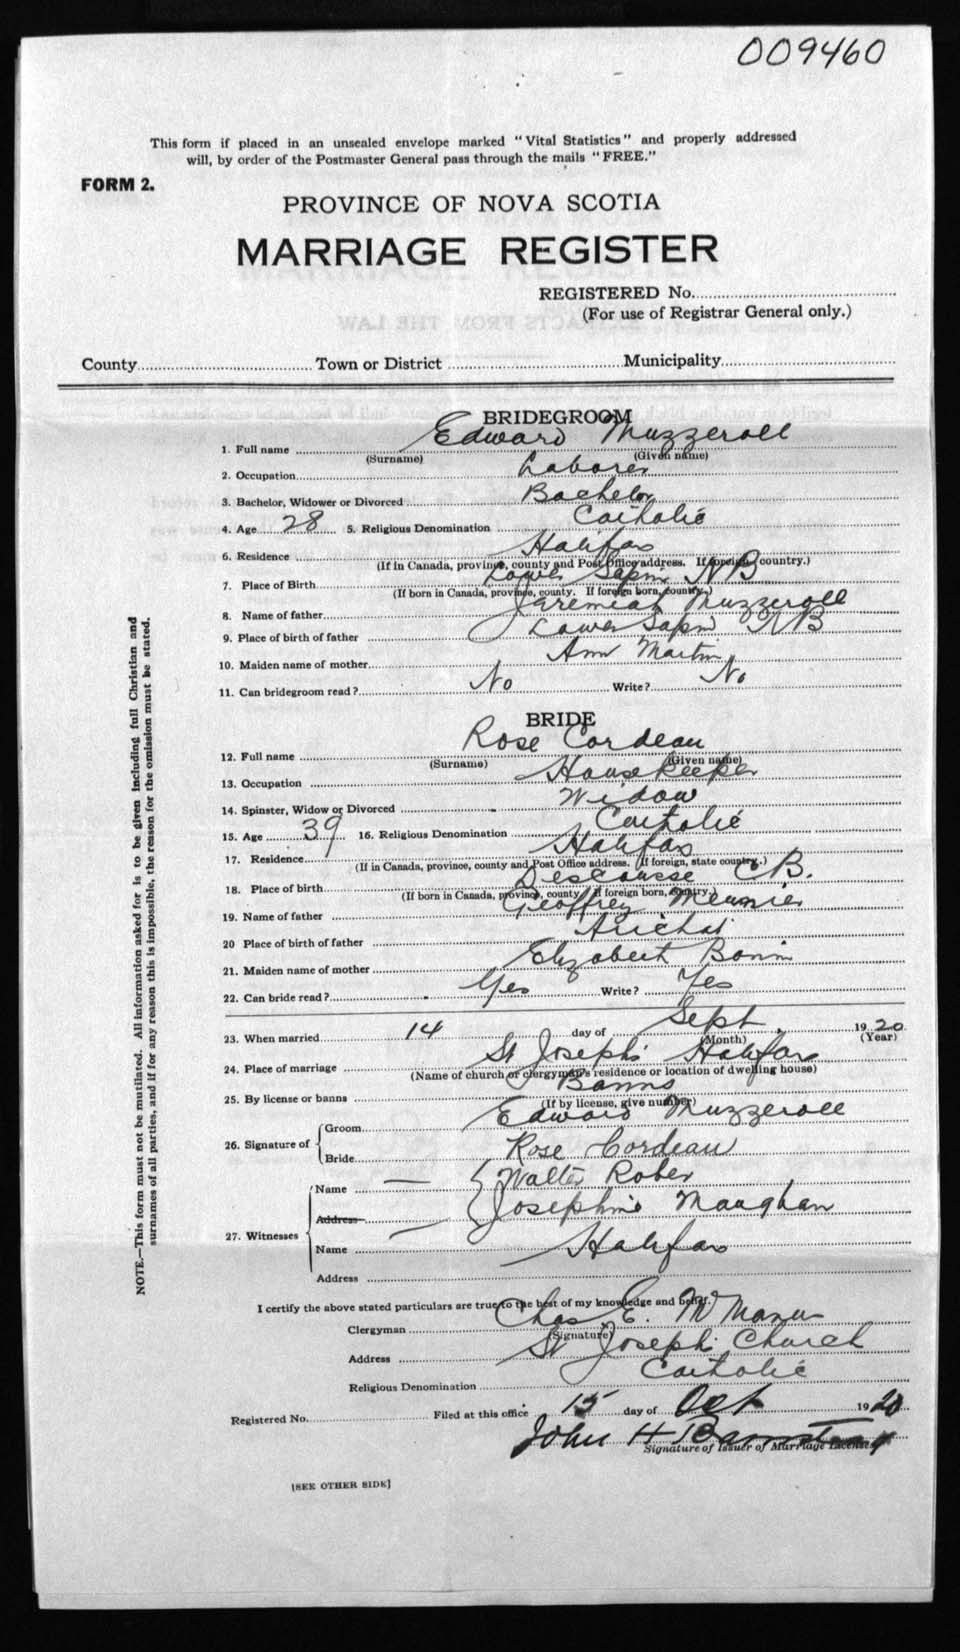 009460
This form if placed in an unsealed envelope marked "Vital Statistics" and properly addressed
will, by order of the Postmaster General pass through the mails "FREE."
FORM 2.
PROVINCE OF NOVA SCOTIA
MARRIAGE REGISTER
REGISTERED No.
(For use of Registrar General only.)
County Town or District Municipality
BRIDEGROOM
1. Full name Edward Muzzeroll
(Surname) (Given name)
2. Occupation Laborer
3. Bachelor, Widower or Divorced Bachelor
4. Age 28 5. Religious Denomination Catholic
6. Residence Halifax
(If in Canada, province, county and Post Office address. If foreign country.)
7. Place of Birth Lower Sapin NB
(If born in Canada, province, county. If foreign born, country.)
8. Name of father Jeremiah Muzzeroll
9. Place of birth of father Lower Sapin NB
10. Maiden name of mother Ann Martin
11. Can bridegroom read? No Write? No
BRIDE
12. Full name Rose Cordeau
(Surname) (Given name)
13. Occupation Housekeeper
14. Spinster, Widow or Divorced Widow
15. Age 39 16. Religious Denomination Catholic
17. Residence Halifax
(If in Canada, province, county and Post Office address. If foreign, state country.)
18. Place of birth Descousse CB.
(If born in Canada, province, county. If foreign born, country.)
19. Name of father Geoffrey
20 Place of birth of father Arichat
21. Maiden name of mother Elizabeth
22. Can bride read? Yes Write? Yes
23. When married 14 day of Sept. 1920
(Month) (Year)
24. Place of marriage St Joseph's Halifax
(Name of church or clergyman's residence or location of dwelling house)
25. By license or banns Banns
(If by license, give number)
26. Signature of Groom Edward Muzzeroll
Bride Rose Cordeau
27. Witnesses Name Walter Rober
Address Josephine Maughan
Name Halifax
Address
I certify the above stated particulars are true to the best of my knowledge and belief.
Clergyman Chas E. McManus
(Signature)
Address St Joseph Church
Religious Denomination Catholic
Registered No. Filed at this office 15 day of Oct 1920
John H
Signature of Issuer of Marriage License
[SEE OTHER SIDE]
NOTE.—This form must not be mutilated. All information asked for is to be given including full Christian and
surnames of all parties, and if for any reason this is impossible, the reason for the omission must be stated.